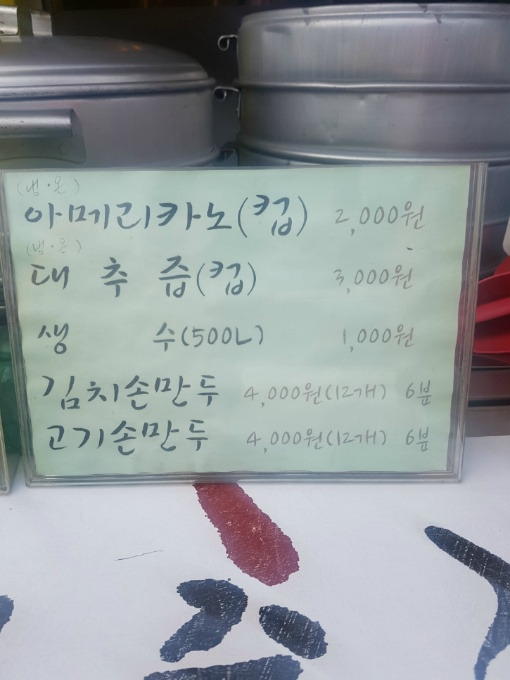 (냉·온)
아메리카노(컵) 2,000원
(냉·온)
대추즙(컵) 3,000원
생수(500L) 1,000원
김치손만두 4,000원(12개) 6분
고기손만두 4,000원(12개) 6분